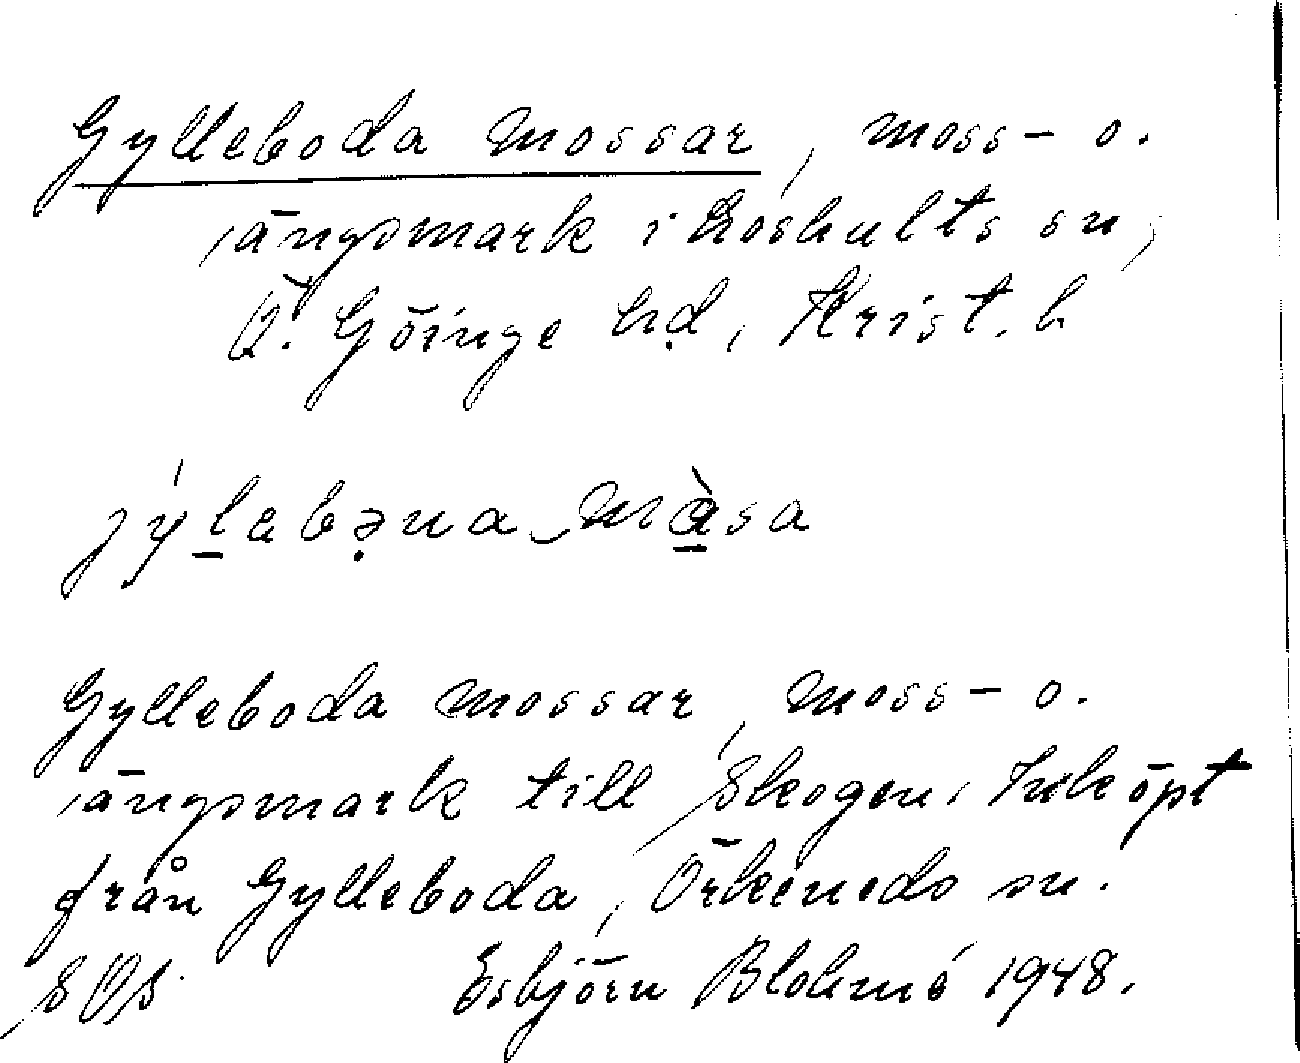 Gylleboda mossar, moss- o.
ängsmark i Loshults sn,
Ö. Göinge hd, Krist. l.
jýlebəna màsa
Gylleboda mossar, moss- o.
ängsmark till Skogen, Inköpt
från Gylleboda, Örkeneds sn.
SOS Esbjörn Blohmé 1948.